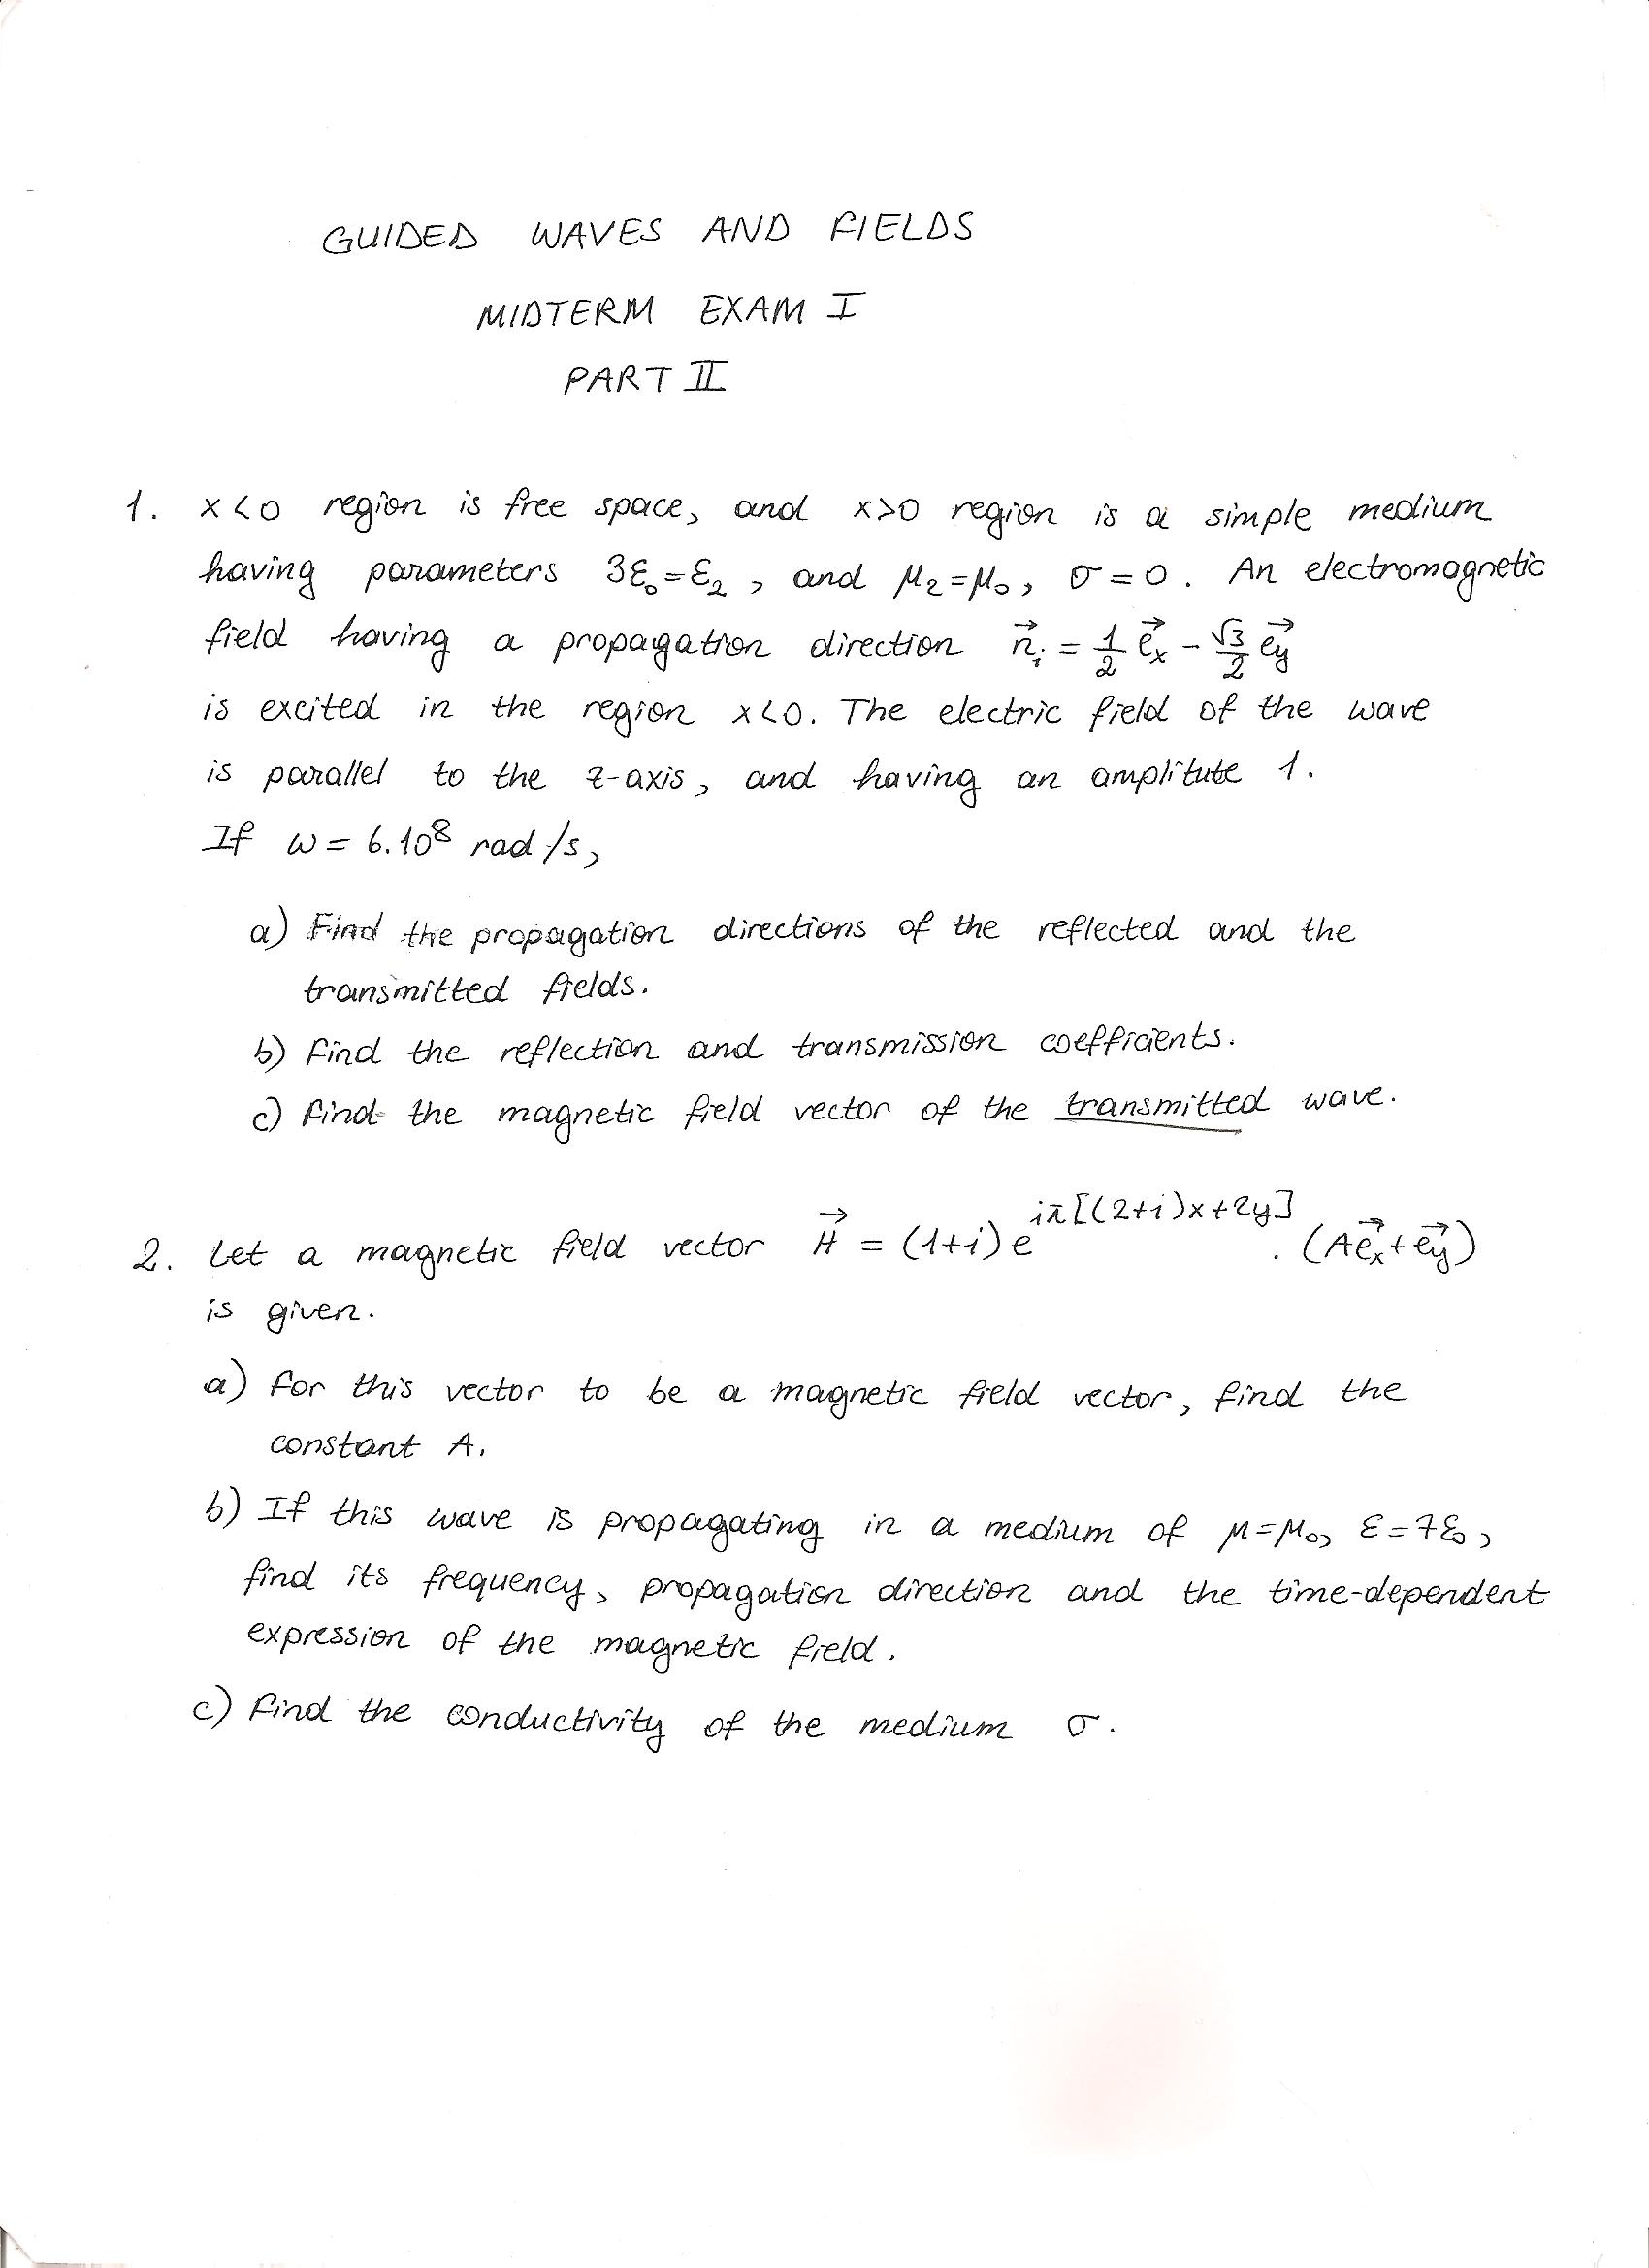 GUIDED WAVES AND FIELDS
MIDTERM EXAM I
PART II
1. x<0 region is free space, and x>0 region is a simple medium
having parameters 3ε₀=ε₂, and μ₂=μ₀, σ=0. An electromagnetic
field having a propagation direction n⃗ᵢ = 1/2 e⃗ₓ - √3/2 e⃗y
is excited in the region x<0. The electric field of the wave
is parallel to the z-axis, and having an amplitute 1.
If ω = 6.10⁸ rad/s,
a) Find the propagation directions of the reflected and the
transmitted fields.
b) Find the reflection and transmission coefficients.
c) Find the magnetic field vector of the transmitted wave.
2. Let a magnetic field vector H⃗ = (1+i) e^{iπ[(2+i)x+2y]} . (Ae⃗ₓ+e⃗y)
is given.
a) For this vector to be a magnetic field vector, find the
constant A.
b) If this wave is propagating in a medium of μ=μ₀, ε=7ε₀,
find its frequency, propagation direction and the time-dependent
expression of the magnetic field.
c) Find the conductivity of the medium σ.